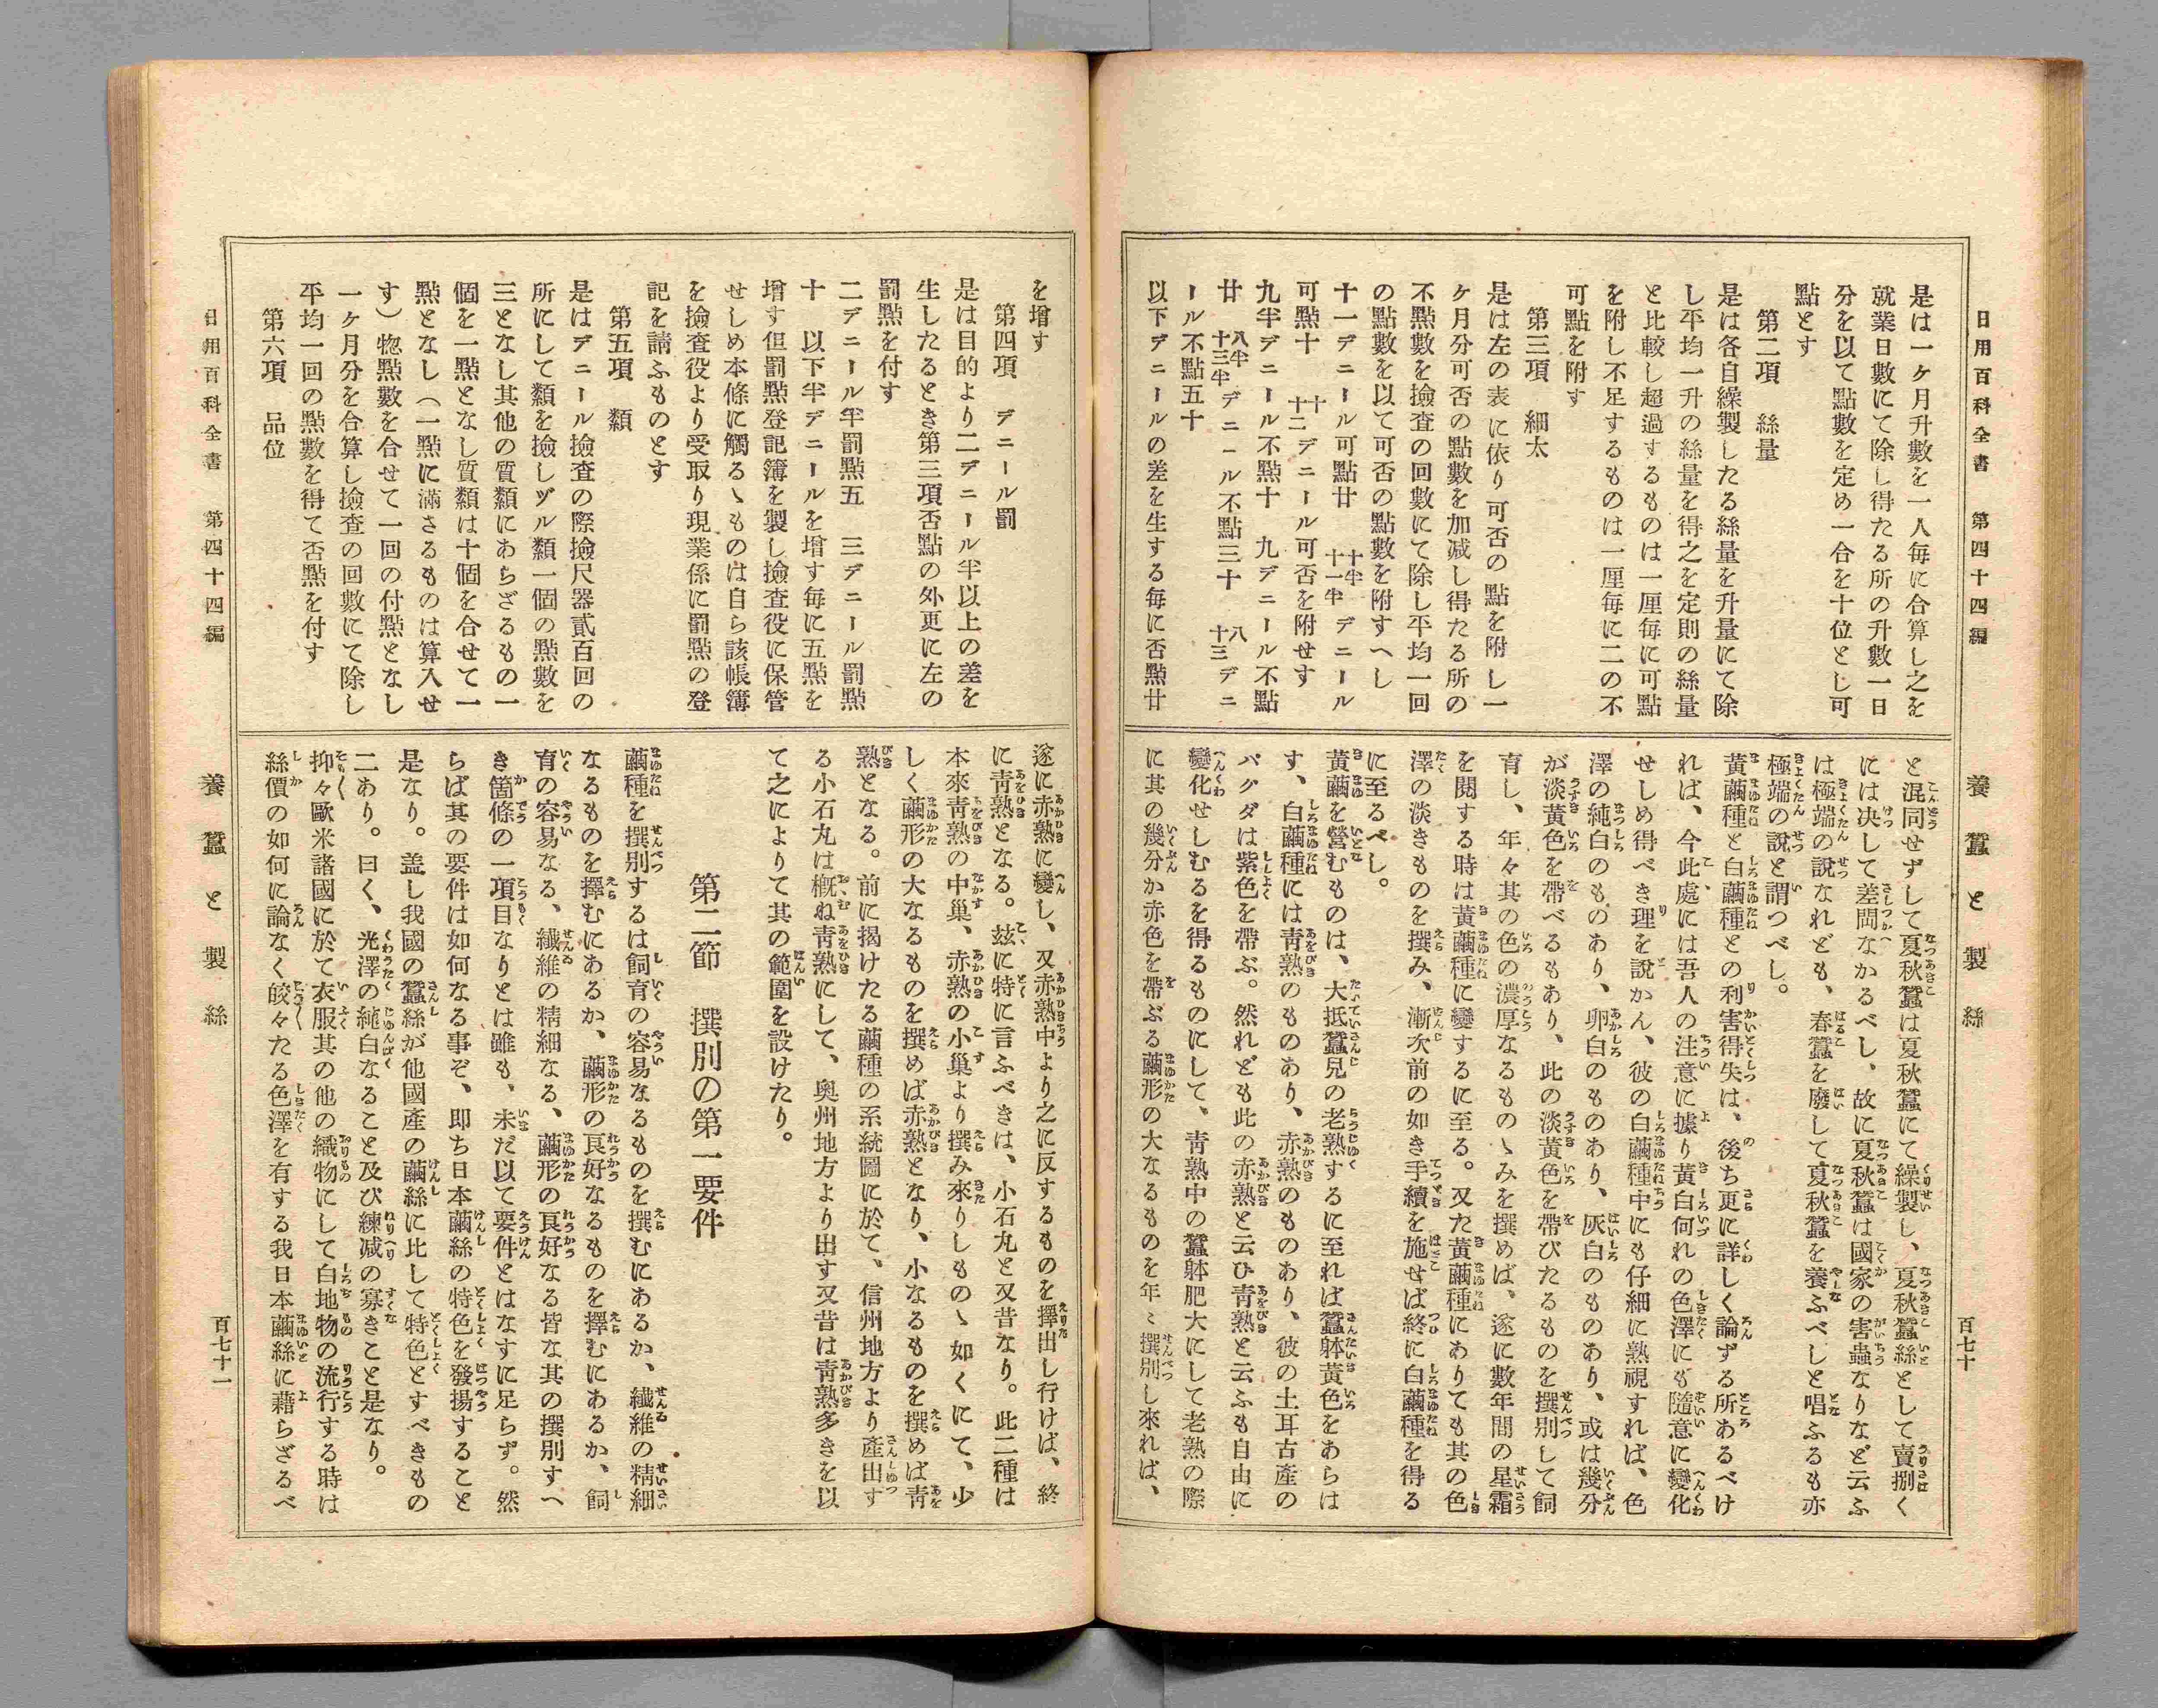 日用百科全書　第四十四編　養蠶と製絲　百七十
是は一ケ月升數を一人毎に合算し之を
就業日數にて除し得たる所の升數一日
分を以て點數を定め一合を十位とし可
點とす
第二項　絲量
是は各自繰製したる絲量を升量にて除
し平均一升の絲量を得之を定則の絲量
と比較し超過するものは一厘毎に可點
を附し不足するものは一厘毎に二の不
可點を附す
第三項　細太
是は左の表に依り可否の點を附し一
ケ月分可否の點數を加減し得たる所の
不點數を撿査の回數にて除し平均一回
の點數を以て可否の點數を附すへし
十一デニール可點廿　十半十一半デニール
可點十　十十二デニール可否を附せす
九半デニール不點十　九デニール不點
廿　八半十三半デニール不點三十　八十三デニ
ール不點五十
以下デニールの差を生する毎に否點廿
と混同せずして夏秋蠶は夏秋蠶にて繰製し、夏秋蠶絲として賣捌く
には决して差閊なかるべし、故に夏秋蠶は國家の害蟲なりなど云ふ
は極端の說なれども、春蠶を廢して夏秋蠶を養ふべしと唱ふるも亦
極端の說と謂つべし。
黃繭種と白繭種との利害得失は、後ち更に詳しく論ずる所あるべけ
れば、今此處には吾人の注意に據り黃白何れの色澤にも隨意に變化
せしめ得べき理を說かん、彼の白繭種中にも仔細に熟視すれば、色
澤の純白のものあり、卵白のものあり、灰白のものあり、或は幾分
が淡黃色を帶べるもあり、此の淡黃色を帶びたるものを撰別して飼
育し、年々其の色の濃厚なるものゝみを撰めば、遂に數年間の星霜
を閱する時は黃繭種に變するに至る。又た黃繭種にありても其の色
澤の淡きものを撰み、漸次前の如き手續を施せば終に白繭種を得る
に至るべし。
黃繭を營むものは、大抵蠶兒の老熟するに至れば蠶躰黃色をあらは
す、白繭種には靑熟のものあり、赤熟のものあり、彼の土耳古產の
バグダは紫色を帶ぶ。然れども此の赤熟と云ひ靑熟と云ふも自由に
變化せしむるを得るものにして、靑熟中の蠶躰肥大にして老熟の際
に其の幾分か赤色を帶ぶる繭形の大なるものを年〻撰別し來れば、
を增す
第四項　デニール罰
是は目的より二デニール半以上の差を
生したるとき第三項否點の外更に左の
罰點を付す
二デニール半罰點五　三デニール罰點
十　以下半デニールを增す毎に五點を
增す但罰點登記簿を製し撿査役に保管
せしめ本條に觸るゝものは自ら該帳簿
を撿査役より受取り現業係に罰點の登
記を請ふものとす
第五項　類
是はデニール撿査の際撿尺器貳百回の
所にして類を撿しヅル類一個の點數を
三となし其他の質類にあらざるもの一
個を一點となし質類は十個を合せて一
點となし（一點に滿さるものは算入せ
す）惣點數を合せて一回の付點となし
一ケ月分を合算し撿査の回數にて除し
平均一回の點數を得て否點を付す
第六項　品位
遂に赤熟に變し、又赤熟中より之に反するものを擇出し行けば、終
に靑熟となる。玆に特に言ふべきは、小石丸と又昔なり。此二種は
本來靑熟の中巢、赤熟の小巢より撰み來りしものゝ如くにて、少
しく繭形の大なるものを撰めば赤熟となり、小なるものを撰めば靑
熟となる。前に揭けたる繭種の系統圖に於て、信州地方より產出す
る小石丸は槪ね靑熟にして、奥州地方より出す又昔は靑熟多きを以
て之によりて其の範圍を設けたり。
第二節　撰別の第一要件
繭種を撰別するは飼育の容易なるものを撰むにあるか、纎維の精細
なるものを擇むにあるか、繭形の良好なるものを擇むにあるか、飼
育の容易なる、纎維の精細なる、繭形の良好なる皆な其の撰別すへ
き箇條の一項目なりとは雖も、未だ以て要件とはなすに足らず。然
らば其の要件は如何なる事ぞ、即ち日本繭絲の特色を發揚すること
是なり。盖し我國の蠶絲が他國產の繭絲に比して特色とすべきもの
二あり。曰く、光澤の純白なること及び練减の寡きこと是なり。
抑々歐米諸國に於て衣服其の他の織物にして白地物の流行する時は
絲價の如何に論なく皎々たる色澤を有する我日本繭絲に藉らざるべ
日用百科全書　第四十四編　養蠶と製絲　百七十一